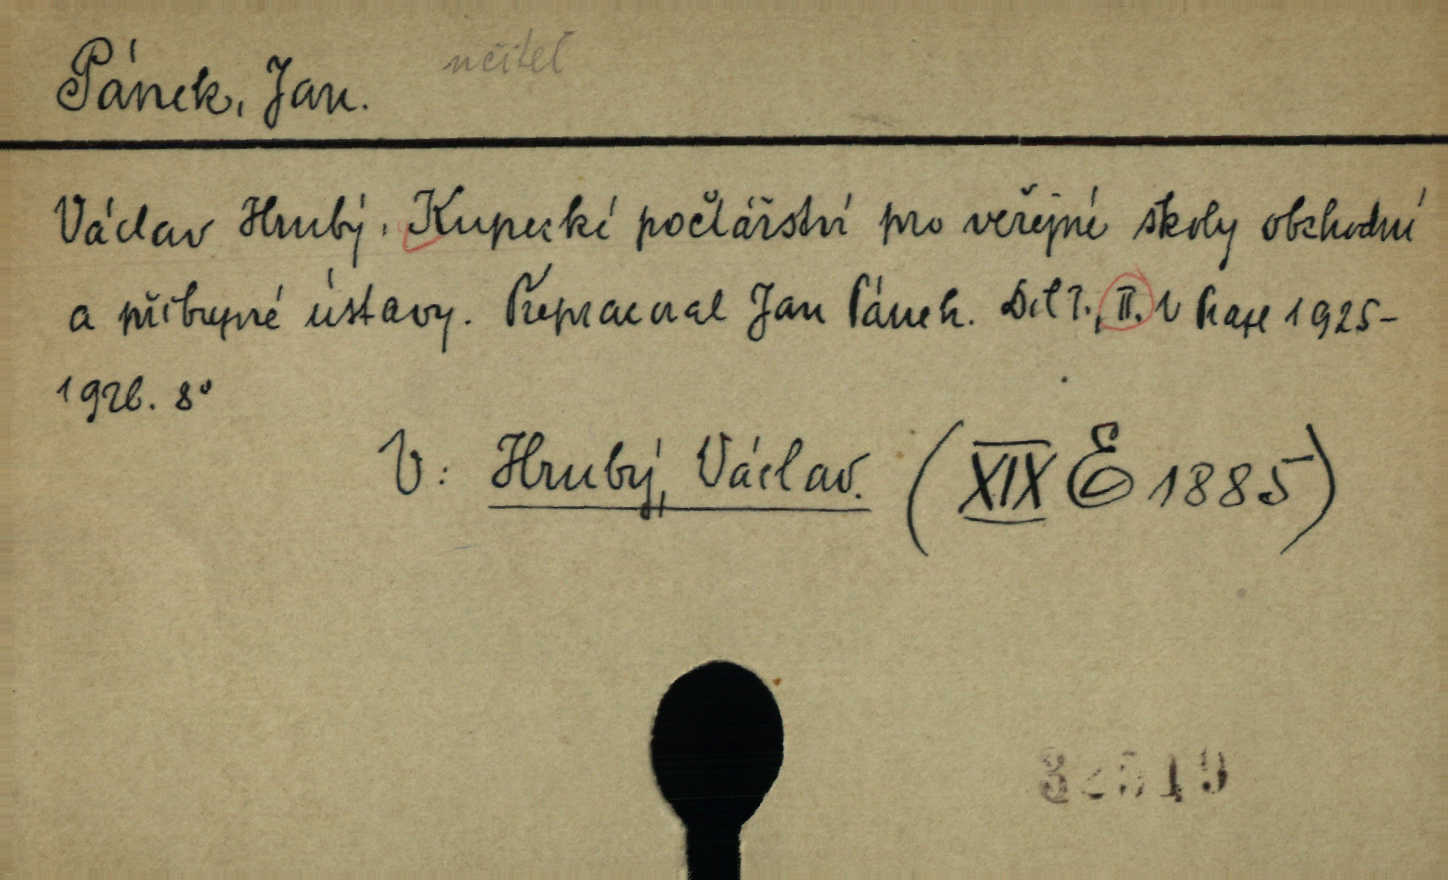 Pánek, Jan. učitel
Václav Hrubý. Kupecké počtářství pro veřejné školy obchodní
a příbuzné ústavy. Přepracoval Jan Pánek. Díl I., II. V Praze 1925-
1926. 8°
V: Hrubý, Václav. (XIX E 1885)
32519